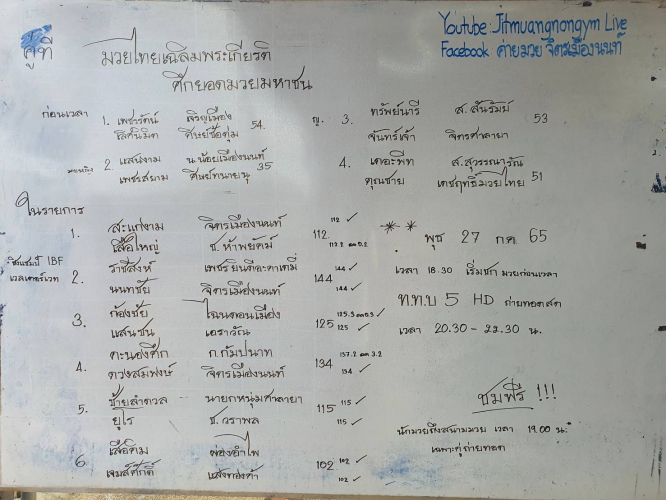 คู่ที่
มวยไทยเฉลิมพระเกียรติ
ศึกยอดมวยมหาชน
Youtube: Jitmuangnongym Live
Facebook ค่ายมวย จิตรเมืองนนท์
ก่อนเวลา
1. เพชรรัตน์ เจริญเมือง
โลศนิมิต ศิษย์ซ้อตุ่ม 54.
2. แสนงาม น.น้อยเมืองนนท์
เพชรสยาม ศิษย์ทนายนุ 35
ญ. 3. ทรัพย์นารี ส.สันรัมย์
จันทร์เจ้า จิตรศาลายา 53
4. เดอะพีท ส.สุวรรณารัณ
คุณชาย เดชฤทธิ์มวยไทย 51
ในรายการ
1. สะแกงาม จิตรเมืองนนท์ 112 ✓
เสือใหญ่ ช.ห้าพยัคฆ์ 112. 112.2 ลด 0.2
ชิงแชมป์ IBF
เวลเตอร์เวท
2. ราชสิงห์ เพชรยินดีอะคาเดมี่ 144 ✓
นนทชัย จิตรเมืองนนท์ 144 144 ✓
3. ก้องชัย ไฉนดอนเมือง 125.3 ลด 0.3 ✓
แสนชน เอราวัณ 125 125 ✓
4. คะนองศึก ก.กัมปนาท 137.2 ลด 3.2
ดวงสมพงษ์ จิตรเมืองนนท์ 134 134 ✓
5. ซ้ายลำดวล นายกหนุ่มศาลายา 115 ✓
ยุโร ช.วราพล 115 115 ✓
6 เสือคิม ผ่องอำไพ 102 ✓
เจมส์ศักดิ์ แสงทองคำ 102 102 ✓
** พุธ 27 กค 65
เวลา 18.30 เริ่มชก มวยก่อนเวลา
ท.ท.บ 5 HD ถ่ายทอดสด
เวลา 20.30 - 22.30 น.
ชมฟรี !!!
นักมวยถึงสนามมวย เวลา 19.00 น.
เฉพาะคู่ถ่ายทอด